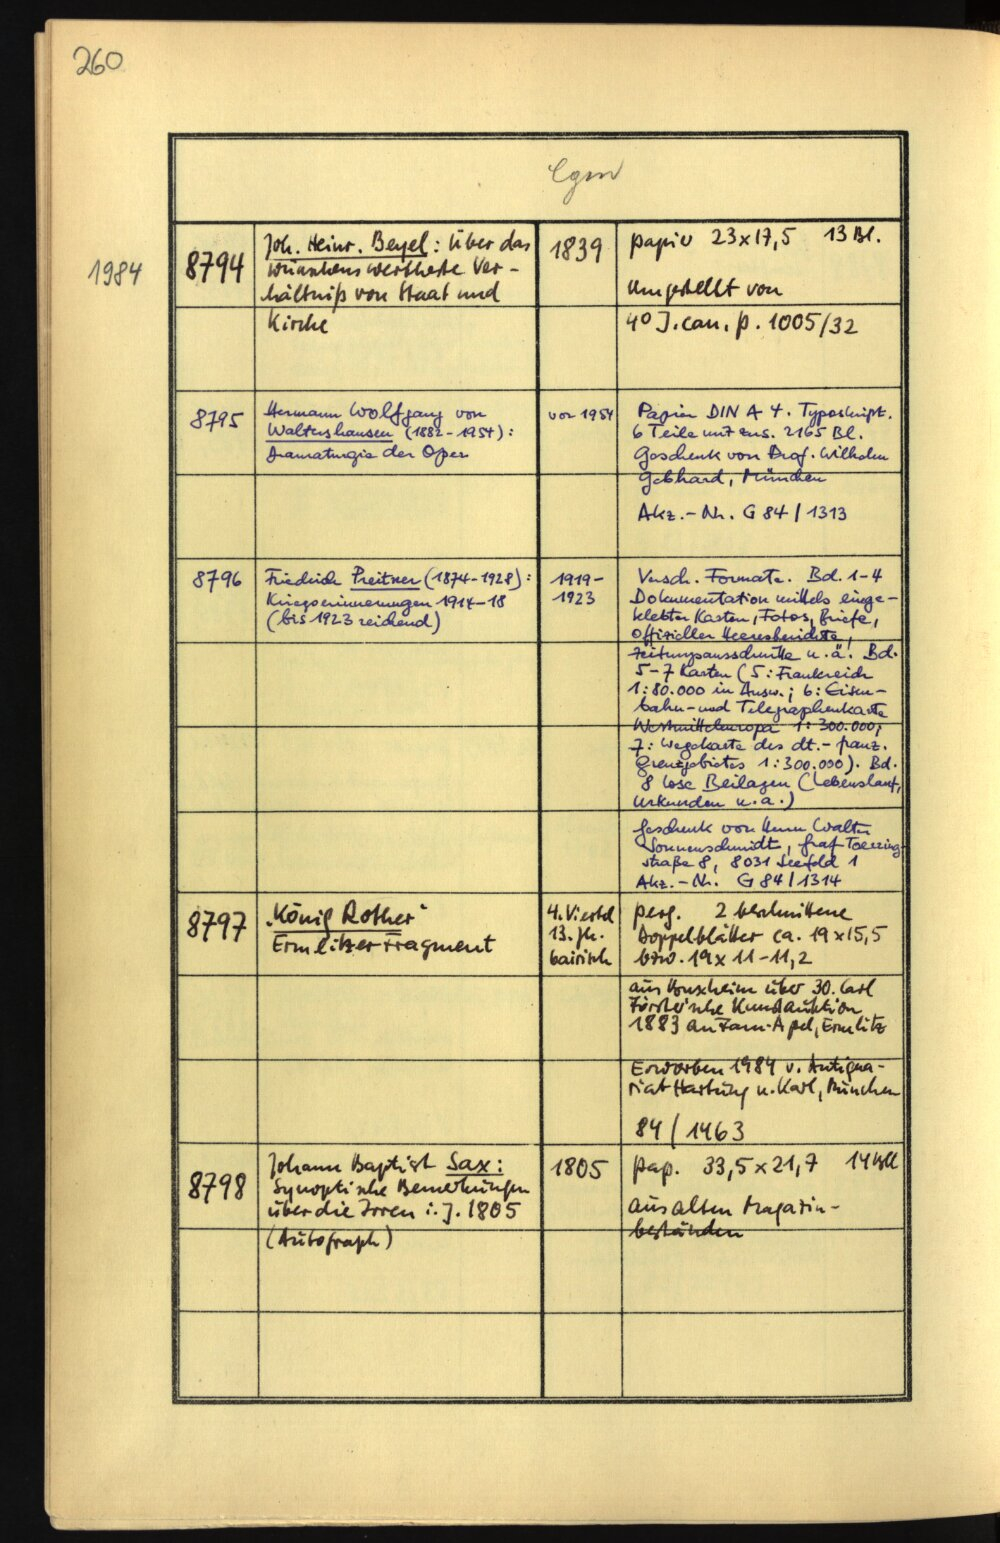 260
Cgm
1984
8794
Joh. Heinr. Beyel: Über das
wünschenswertheste Ver-
hältniß von Staat und
Kirche
1839
Papier 23x17,5 13 Bl.
Umgestellt von
4° J. can. p. 1005/32
8795
Hermann Wolfgang von
Waltershausen (1882-1954):
Dramaturgie der Oper
vor 1954
Papier DIN A 4. Typoskript.
6 Teile mit zus. 2165 Bl.
Geschenk von Prof. Wilhelm
Gebhard, München
Akz.-Nr. G 84/1313
8796
Friedrich Preitner (1874-1928):
Kriegserinnerungen 1914-18
(bis 1923 reichend)
1919-
1923
Versch. Formate. Bd. 1-4
Dokumentation mittels einge-
klebter Karten, Fotos, Briefe,
offizieller Heeresberichte,
Zeitungsausschnitte u.ä. Bd.
5-7 Karten (5: Frankreich
1:80.000 in Ausw.; 6: Eisen-
bahn- und Telegraphenkarte
Westmitteleuropa 1:300.000;
7: Wegekarte des dt.-franz.
Grenzgebietes 1:300.000). Bd.
8 lose Beilagen (Lebenslauf,
Urkunden u.a.)
Geschenk von Herrn Walter
Sonnenschmidt, Graf-Toerring-
straße 8, 8031 Seefeld 1
Akz.-Nr. G 84/1314
8797
"König Rother"
Ermlitzer Fragment
4. Viertel
13. Jh.
bairisch
Perg. 2 beschnittene
Doppelblätter ca. 19x15,5
bzw. 19x11-11,2
aus Buxheim über 30. Carl
Förster'sche Kunstauktion
1883 an Fam. Apel, Ermlitz
Erworben 1984 v. Antiqua-
riat Hartung u. Karl, München
84/1463
8798
Johann Baptist Sax:
Synoptische Bemerkungen
über die Irren i. J. 1805
(Autograph)
1805
Pap. 33,5x21,7 14 Bll
aus alten Magazin-
beständen